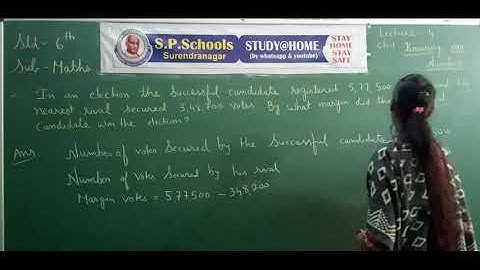 Std- 6th
Sub- Maths
S.P.Schools
Surendranagar
STUDY@HOME
(by whatsapp & youtube)
STAY
HOME
STAY
SAFE
Lecture 4
Ch-1 Knowing our
Numbers
In an election the Sucessful candidate registered 5,77,500
nearest rival secured 3,48,700 votes By what margin did the
candidate won the election?
Ans Number of votes Secured by the Successful candidate
Number of Votes Secured by his rival
Margin votes = 577500 - 348,700